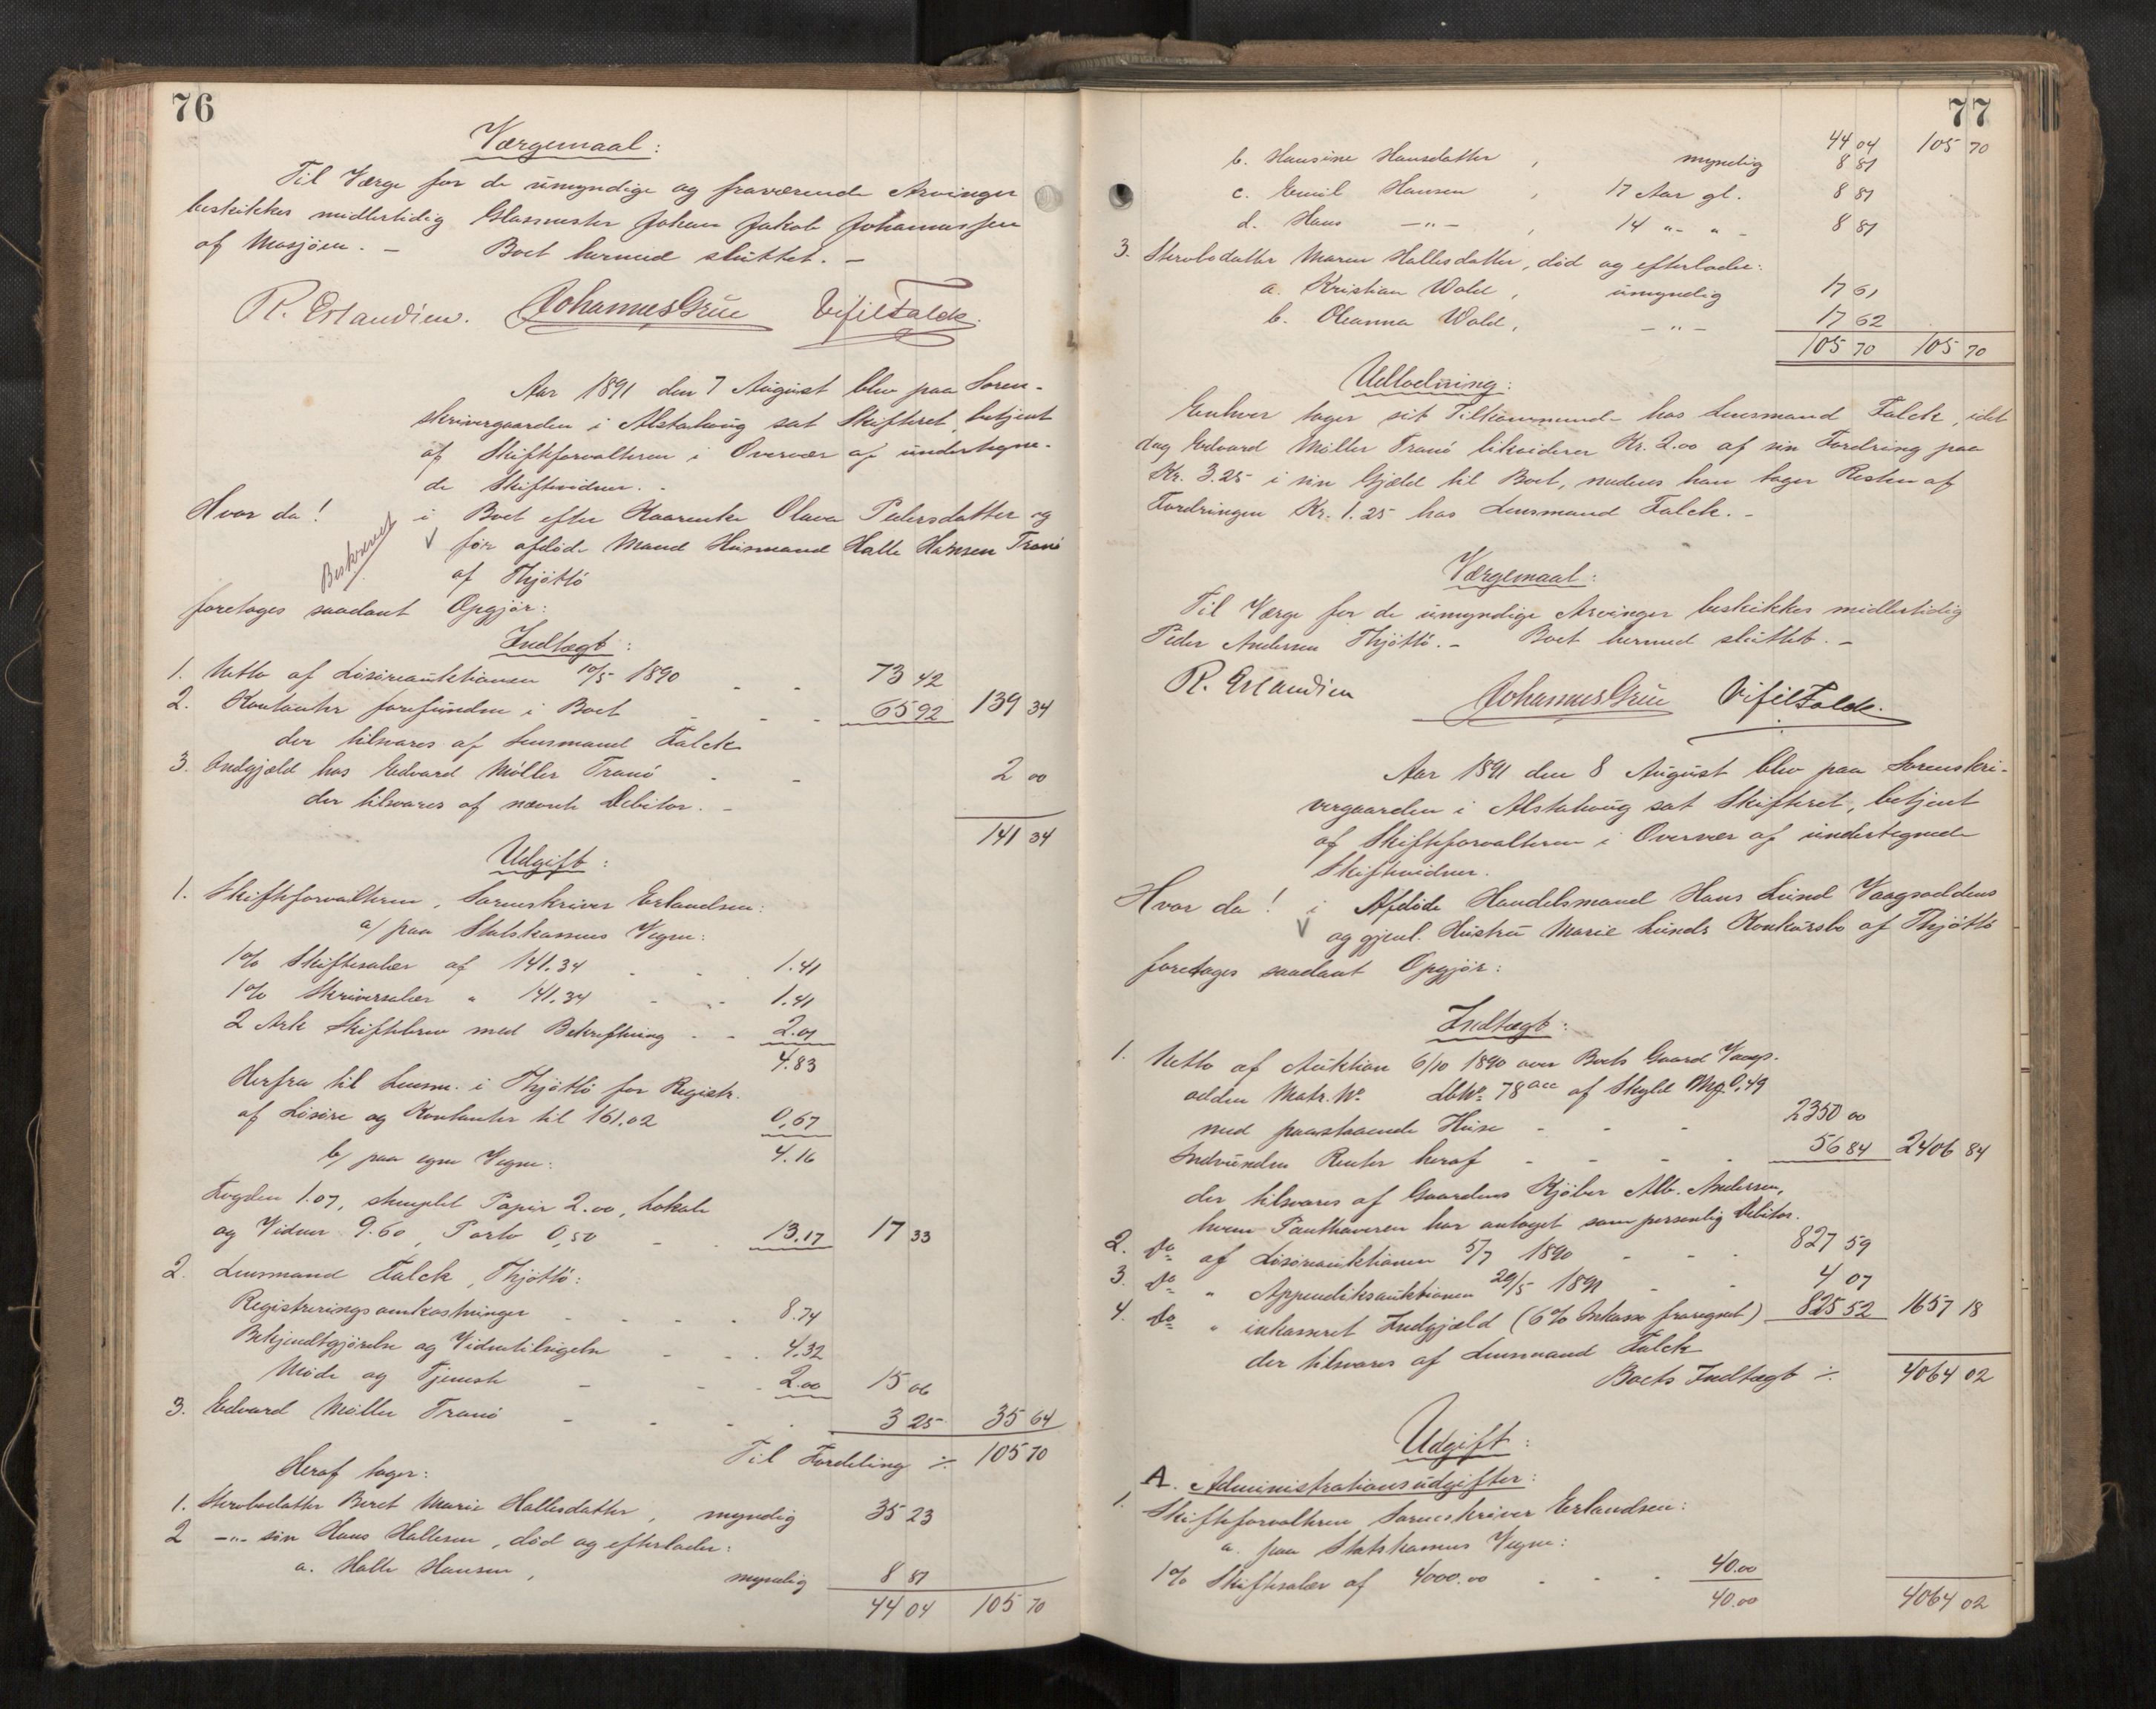 76
Værgemaal:
Til Værge for de umyndige og fraværende Arvinger
beskikkes midlertidig Glasmester Johan Jakob Johannessen
af Mosjøen. – Boet hermed sluttet. –
R. Erlandsen. Johannes Grue Vifil Falck.
Aar 1891 den 7 August blev paa Soren-
skrivergaarden i Alstahoug sat Skifteret, betjent
af Skifteforvalteren i Overvær af undertegne-
de Skiftevidner. -
Hvor da! i Boet efter Kaarenke Olava Pedersdatter og
Beskrevet
før afdøde Mand Husmand Halle Hansen Tranø
af Thjøttø
foretages saadant Opgjør:
Indtægt:
1. Netto af Løsøreauktionen 10/5 1890 - - 73 42
2. Kontanter forefunden i Boet - - - 65 92 139 34
der tilsvares af Lensmand Falck
3. Indgjæld hos Edvard Møller Tranø - - 2 00
der tilsvares af nævnte Debitor. -
141 34
Udgift:
1. Skifteforvalteren, Sorenskriver Erlandsen:
a/ paa Statskassens Vegne:
1% Skiftesalær af 141.34 - - 1.41
1% Skriversalær " 141.34 - - 1.41
2 Ark Skiftebrev med Bekræftning - - 2.01
4.83
Herfra til Lensm. i Thjøttø for Registr.
af Løsøre og Kontanter til 161.02 0,67
4.16
b/ paa egne Vegne:
Fogden 1.07, stemplet Papir 2.00, Lokale
og Vidner 9.60, Porto 0,50 - - 13.17 17 33
2. Lensmand Falck, Thjøttø:
Registreringsomkostninger - - - - 8.74
Bekjendtgjørelse og Vidnetilsigelse - - - 4.32
Møde og Tjeneste - - - 2.00 15 06
3. Edvard Møller Tranø - - - - 3 25 35 64
Til Fordeling ٪ 105 70
Heraf tager:
1. Stervbodatter Beret Marie Hallesdatter, myndig 35 23
2 -"- søn Hans Hallesen, død og efterlader:
a. Halle Hansen, myndig 8 81
44 04 105 70
77
44 04 105 70
b. Hansine Hansdatter, myndig 8 81
c. Emil Hansen, 17 Aar gl. 8 81
d. Hans -"-, 14 "- "- 8 81
3. Stervbodatter Maren Hallesdatter, død og efterlader:
a. Kristian Wold, umyndig 17 61
b. Oleanna Wold, -"- 17 62
105 70 105 70
Udlodning:
Enhver tager sit Tilkommende hos Lensmand Falck, idet
dog Edvard Møller Tranø likviderer Kr. 2.00 af sin Fordring paa
Kr. 3.25 i sin Gjæld til Boet, medens han tager Resten af
Fordringen Kr. 1.25 hos Lensmand Falck. -
Værgemaal:
Til Værge for de umyndige Arvinger beskikkes midlertidig
Peder Andersen Thjøttø. - Boet hermed sluttet. -
R. Erlandsen Johannes Grue Vifil Falck.
Aar 1891 den 8 August blev paa Sorenskri-
vergaarden i Alstahoug sat Skifteret, betjent
af Skifteforvalteren i Overvær af undertegnede
Skiftevidner.
Hvor da! i Afdøde Handelsmand Hans Lund Vaagsoddens
og gjenl. Hustru Marie Lunds Konkursbo af Thjøttø
foretages saadant Opgjør:
Indtægt:
1. Netto af Auktion 6/10 1890 over Boets Gaard Vaags-
odden Matr. No LbNo 78 af Skyld Mrk. 0,49
med paastaaende Huse - - - 2350 00
Indvundne Renter heraf - - - - 56 84 2406 84
der tilsvares af Gaardens Kjøber Alb. Andersen,
hvem Panthaveren har antaget som personlig Debitor.
2. Do af Løsøreauktionen 5/7 1890 - - - 827 59
3. Do " Appendiksauktionen 29/5 1891 - - 4 07
4. Do " inkasseret Indgjæld (6% Inkasso fraregnet) 825 52 1657 18
der tilsvares af Lensmand Falck
Boets Indtægt ٪ 4064 02
Udgift:
A. Administrationsudgifter:
1. Skifteforvalteren Sorenskriver Erlandsen:
a. paa Statskassens Vegne:
1% Skiftesalær af 4000.00 - - - 40.00
40.00 4064 02